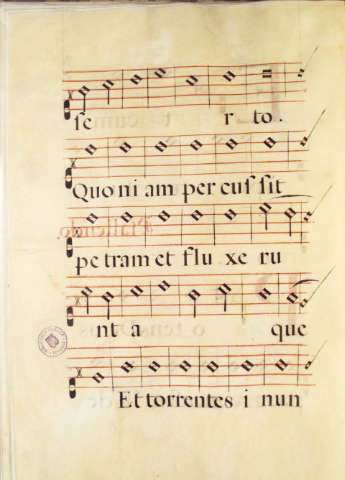 se r to.
Quo ni am per cus sit
pe tram et flu xe ru
nt a que
Et torrentes i nun